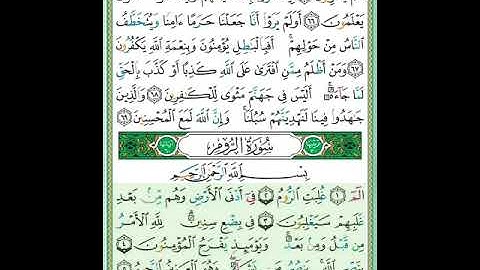 يَعْلَمُونَ ٦٦ أَوَلَمْ يَرَوْا أَنَّا جَعَلْنَا حَرَمًا ءَامِنًا وَيُتَخَطَّفُ
النَّاسُ مِنْ حَوْلِهِمْ ۚ أَفَبِالْبَاطِلِ يُؤْمِنُونَ وَبِنِعْمَةِ اللَّهِ يَكْفُرُونَ
٦٧ وَمَنْ أَظْلَمُ مِمَّنِ افْتَرَىٰ عَلَى اللَّهِ كَذِبًا أَوْ كَذَّبَ بِالْحَقِّ
لَمَّا جَاءَهُ ۚ أَلَيْسَ فِي جَهَنَّمَ مَثْوًى لِلْكَافِرِينَ ٦٨ وَالَّذِينَ
جَاهَدُوا فِينَا لَنَهْدِيَنَّهُمْ سُبُلَنَا ۚ وَإِنَّ اللَّهَ لَمَعَ الْمُحْسِنِينَ ٦٩
سُورَةُ الرُّومِ
بِسْمِ اللَّهِ الرَّحْمَٰنِ الرَّحِيمِ
الٓمٓ ١ غُلِبَتِ الرُّومُ ٢ فِي أَدْنَى الْأَرْضِ وَهُم مِّنۢ بَعْدِ
غَلَبِهِمْ سَيَغْلِبُونَ ٣ فِي بِضْعِ سِنِينَ ۗ لِلَّهِ الْأَمْرُ
مِن قَبْلُ وَمِنۢ بَعْدُ ۚ وَيَوْمَئِذٍ يَفْرَحُ الْمُؤْمِنُونَ ٤
بِنَصْرِ اللَّهِ ۚ يَنصُرُ مَن يَشَاءُ ۖ وَهُوَ الْعَزِيزُ الرَّحِيمُ